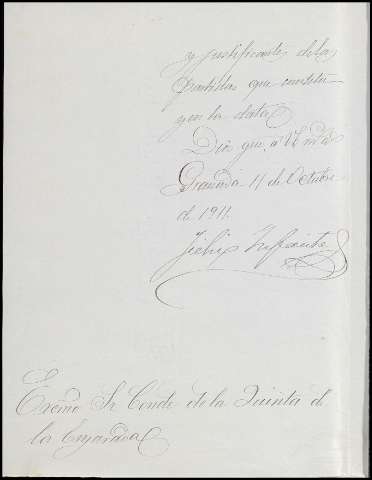 y justificantes de las
partidas que constitu-
yen la data
Dios gue. a V.E. m. a.
Granada 11 de Octubre
de 1911.
Felix Infante
Excmo Sr Conde de la Quinta de
la Enjarada